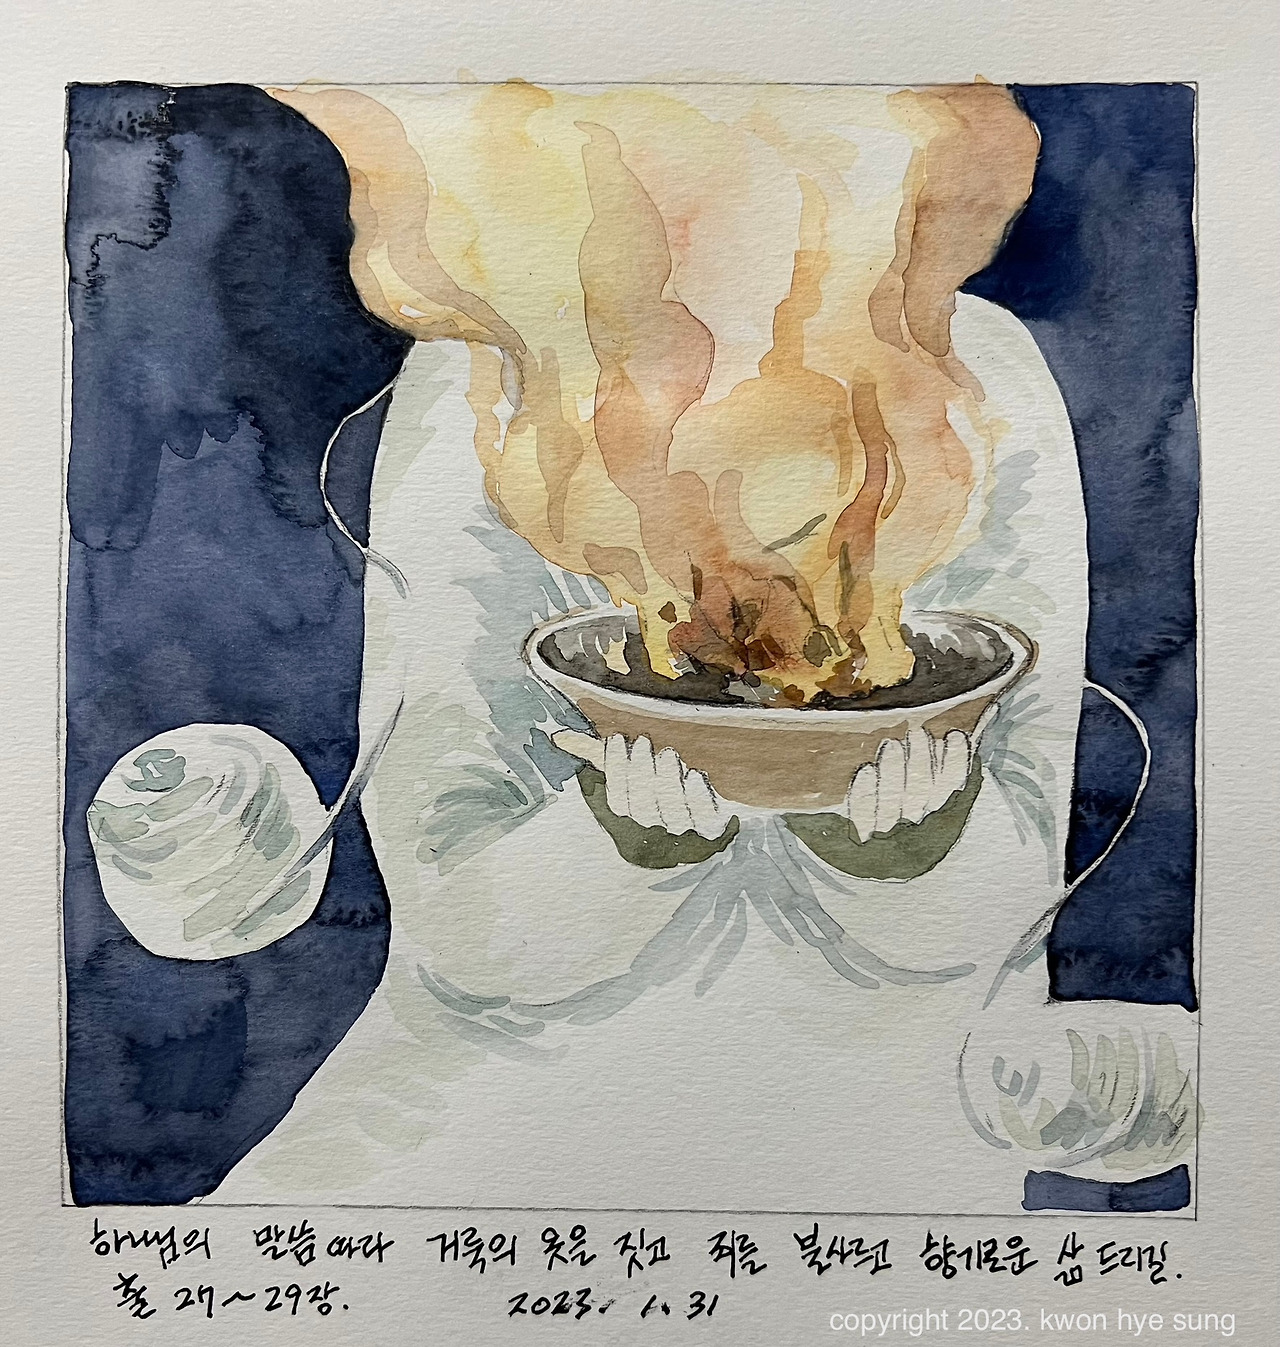 하나님의 말씀 따라 거룩의 옷을 짓고 죄를 불사르고 향기로운 삶 드리길.
출 27~29장. 2023. 1. 31
copyright 2023. kwon hye sung